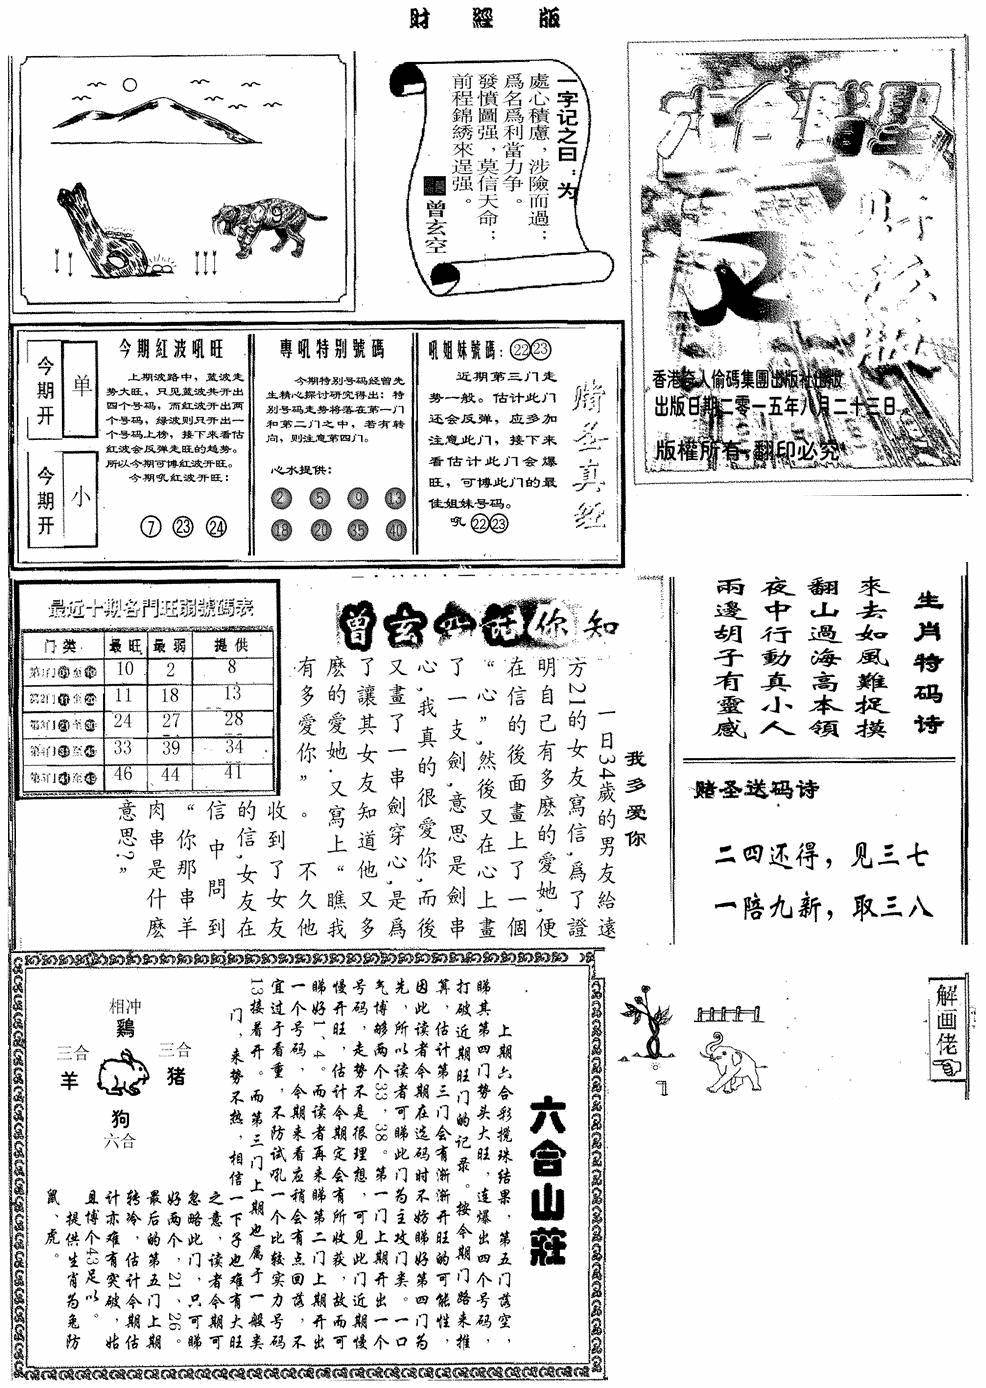 財 經 版
一字记之曰：为
處心積慮，涉險而過；
爲名爲利當力争。
發憤圖强，莫信天命；
前程錦綉來逞强。
曾玄空
六合賭聖
财经版
香港奪人偷碼集團出版社出版
出版日期二零一五年八月二十三日
版權所有，翻印必究
今期开
单
今期开
小
今期红波吼旺
上期波路中，蓝波走
势大旺，只见蓝波共开出
四个号码，而红波开出两
个号码，绿波则只开出一
个号码上榜，接下来看估
红波会反弹走旺的趋势。
所以今期可博红波开旺。
今期吼红波开旺：
7 23 24
專吼特别號碼
今期特别号码经曾先
生精心探讨研究得出：特
别号码走势将落在第一门
和第二门之中，若有转
向，则注意第四门。
心水提供：
2 5 9 13
18 20 35 40
吼姐妹號碼：22 23
近期第三门走
势一般。估计此门
还会反弹，应多加
注意此门，接下来
看估计此门会爆
旺，可博此门的最
佳姐妹号码。
吼 22 23
赌圣真经
最近十期各門旺弱號碼表
门类 最旺 最弱 提供
第1门 01至10 10 2 8
第2门 11至20 11 18 13
第3门 21至30 24 27 28
第4门 31至40 33 39 34
第5门 41至49 46 44 41
曾玄空话你知
我多爱你
一日34歲的男友給遠
方21的女友寫信,爲了證
明自己有多麽的愛她,便
在信的後面畫上了一個
“心”,然後又在心上畫
了一支劍,意思是劍串
心,我真的很愛你,而後
又畫了一串劍穿心,是爲
了讓其女友知道他又多
麽的愛她.又寫上“瞧我
有多愛你”。 不久他
收到了女友
的信,女友在
信中問到
“你那串羊
肉串是什麽
意思?”
生肖特码诗
來去如風難捉摸
翻山過海高本領
夜中行動真小人
兩邊胡子有靈感
赌圣送码诗
二四还得，见三七
一陪九新，取三八
解画佬
相冲
鷄
三合
羊
三合
猪
狗
六合
六合山莊
上期六合彩搅珠结果，第五门落空，
睇其第四门势头大旺，连爆出四个号码，
打破近期旺门的记录。按今期门路来推
算，估计第三门会有渐渐开旺的可能性，
因此读者今期在选码时不妨睇好第四门为
先，所以读者可睇此门为主攻门类。一口
气博够两个33，38。第一门上期开出一个
号码，走势不是很理想，可见此门近期慢
慢开旺，估计今期定会有所收获，故而可
睇好1、4。而读者再来睇第二门上期开出
一个号码，今期来看应稍会有点回落，不
宜过于看重，不防试吼一个比较实力号码
13接着开。而第三门上期也属于一般类
门，来势不热，相信一下子也难有大旺
之意，读者今期可
忽略此门，只可睇
好两个，21、26。
最后的第五门上期
转冷，估计今期估
计亦难有突破，姑
且博个43足以。
提供生肖为兔防
鼠、虎。